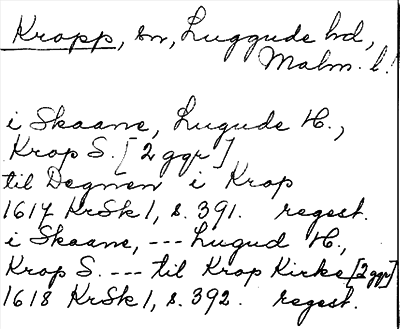 Kropp, sn, Luggude hd,
Malm. l.
i Skaane, Lugude H.,
Krop S. [2 ggr.]
til Degnen i Krop
1617 KrSk 1, s. 391. regest.
i Skaane, --- Lugud H.,
Krop S. --- til Krop Kirke [2 ggr]
1618 KrSk 1, s. 392. regest.